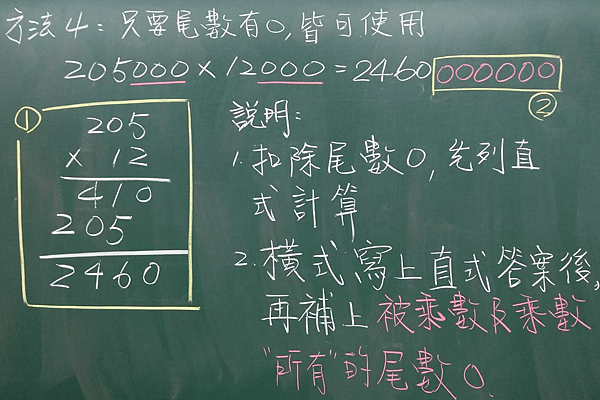 方法4：只要尾數有0，皆可使用
205000×12000=2460000000
②
①
205
× 12
410
205
2460
說明：
1.扣除尾數0，先列直
式計算
2.橫式寫上直式答案後，
再補上被乘數及乘數
"所有"的尾數0.